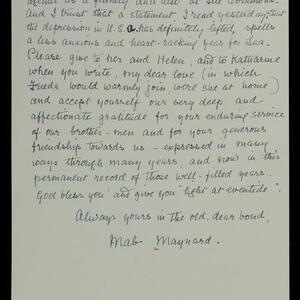 as a family and also at the Commons.
And I trust that a statement I read yesterday, that
the depression in U.S.A. has definitely lifted, spells
a less anxious and heart-racking year for Lea.
Please give to her and Helen, and to Katharine
when you write, my dear love (in which
Freda would warmly join were she at home)
and accept yourself our very deep and
affectionate gratitude for your enduring service
of our brother-men and for your generous
friendship towards us - expressed in many
ways through many years, and now in this
permanent record of those well-filled years.
God bless you! and give you "light at eventide".
Always yours in the old, dear bond,
Mab Maynard.